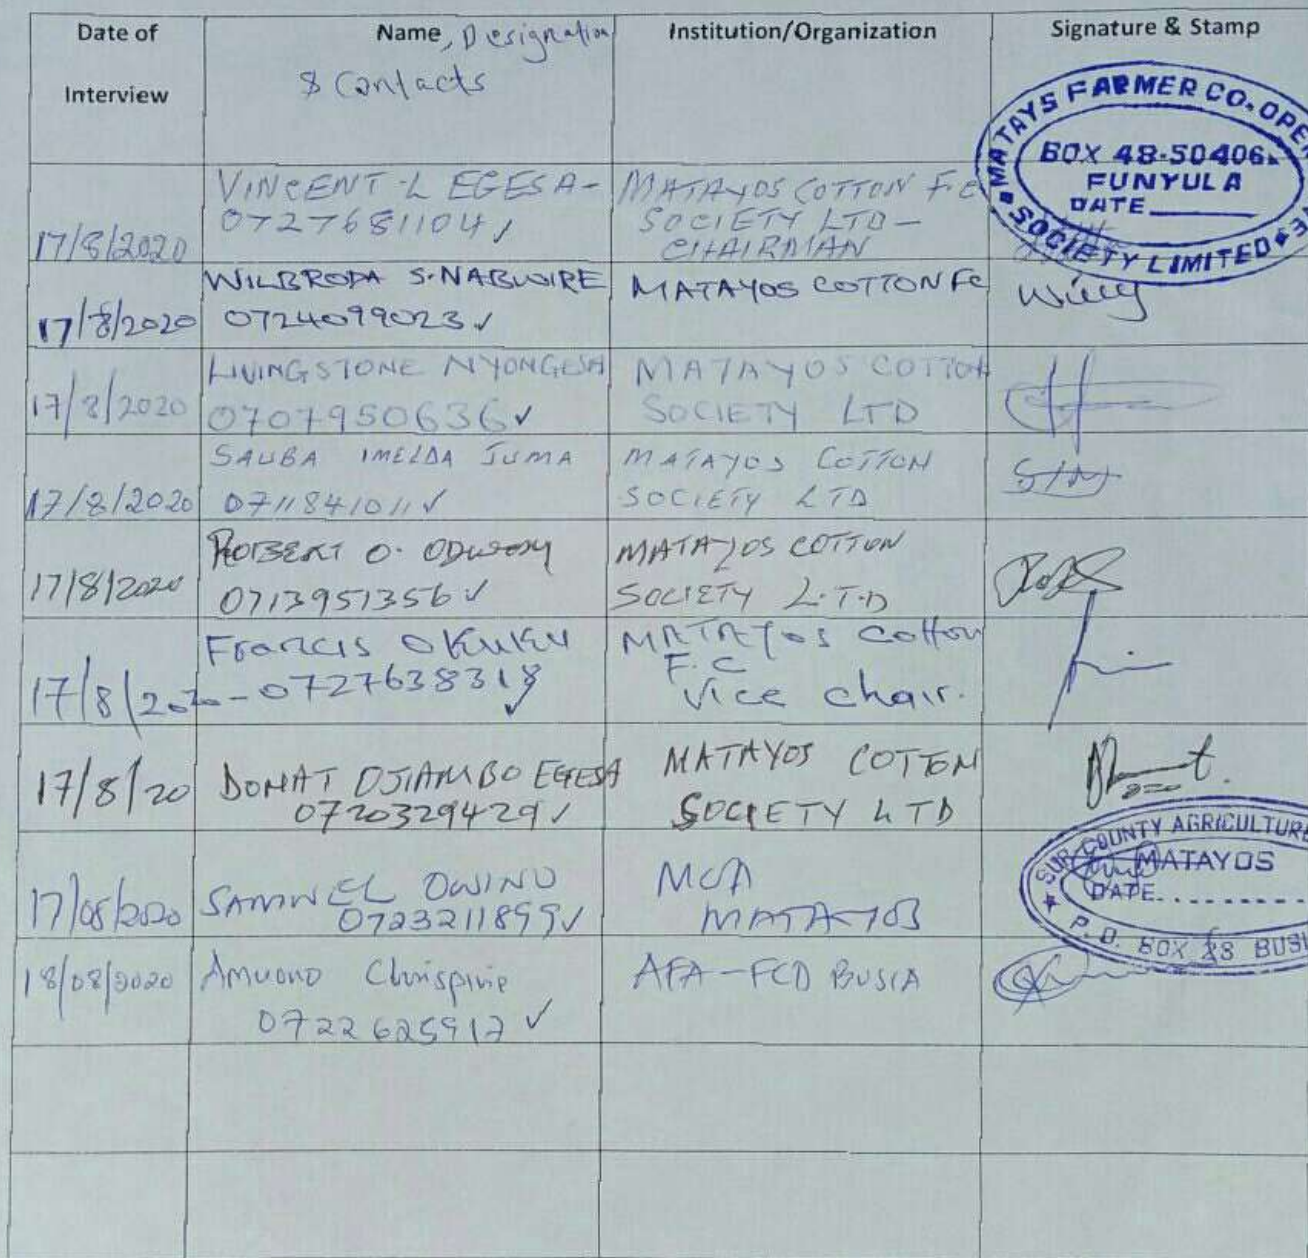 Date of Interview
Name, Designation & Contacts
Institution/Organization
Signature & Stamp
MATAYS FARMER CO.OPE
SOCIETY LIMITED
BOX 48-50406.
FUNYULA
DATE
17/8/2020
VINCENT L EGESA-
0727681104 ✓
MATAYOS COTTON F.C
SOCIETY LTD-
CHAIRMAN
17/8/2020
WILBRODA S. NABWIRE
0724099023 ✓
MATAYOS COTTON FC
17/8/2020
LIVINGSTONE NYONGESA
0707950636 ✓
MATAYOS COTTON
SOCIETY LTD
17/8/2020
SAUBA IMELDA JUMA
0711841011 ✓
MATAYOS COTTON
SOCIETY LTD
17/8/2020
ROBERT O.
0713951356 ✓
MATAYOS COTTON
SOCIETY L.T.D
17/8/2020
Francis Okuku
-0727638318 ✓
MATAYOS Cotton
F.C
Vice chair.
17/8/20
DONAT OJIAMBO EGESA
0720329429 ✓
MATAYOS COTTON
SOCIETY LTD
17/08/2020
SAMWEL OWINO
0723211899 ✓
MATAYOS
SUB-COUNTY AGRICULTURE
MATAYOS
DATE
P.O. BOX 28 BUSI
18/08/2020
Amuono Chrispine
0722625917 ✓
AFA-FCD BUSIA